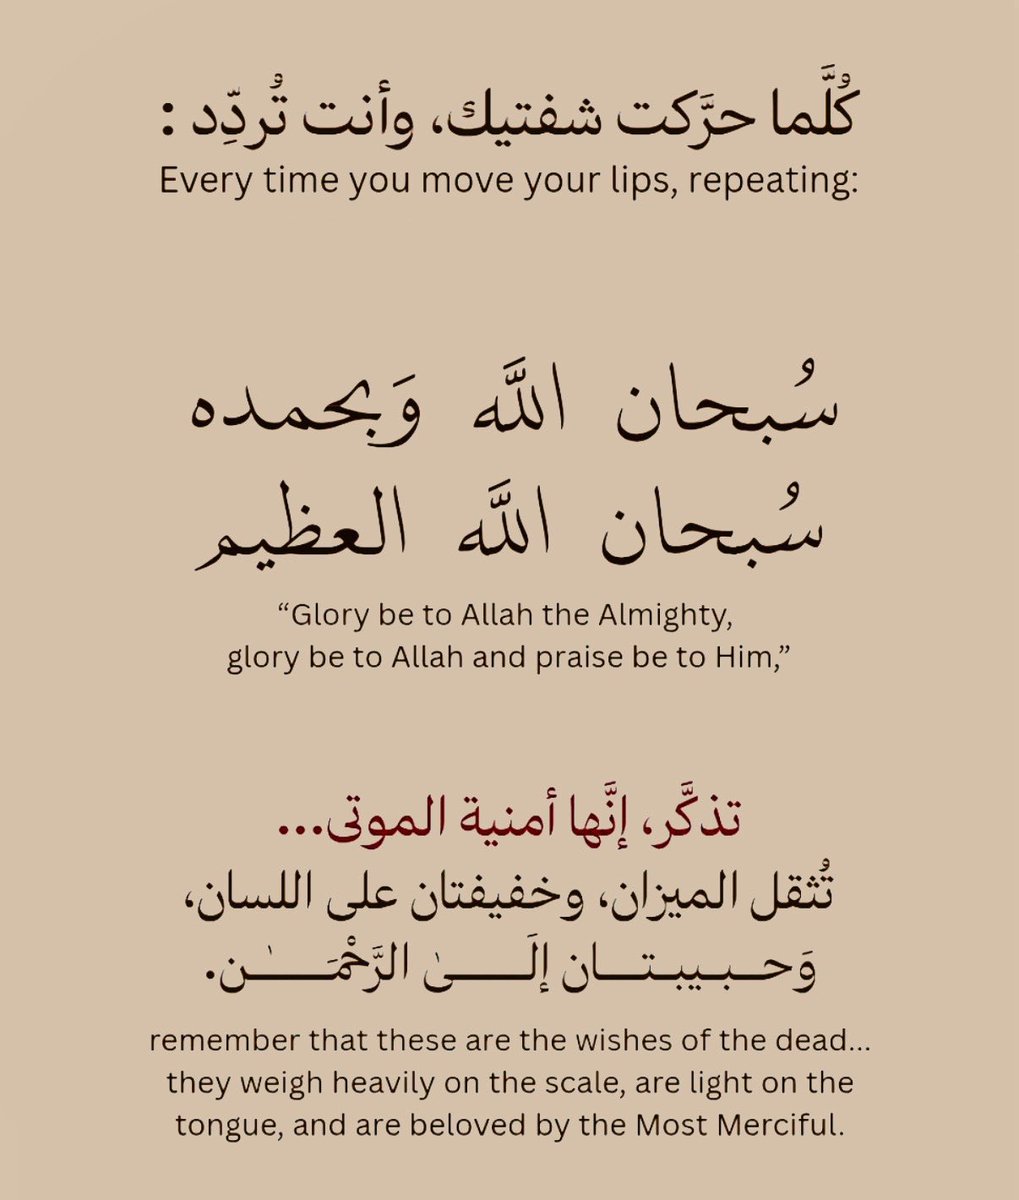 كُلَّما حرَّكت شفتيك، وأنت تُردِّد :
Every time you move your lips, repeating:
سُبحان اللَّه وَبحمده
سُبحان اللَّه العظيم
“Glory be to Allah the Almighty,
glory be to Allah and praise be to Him,”
تذكَّر، إنَّها أمنية الموتى...
تُثقل الميزان، وخفيفتان على اللسان،
وَحـــبـيبتـــان إلَـــــىٰ الرَّحْمَـــــٰن.
remember that these are the wishes of the dead...
they weigh heavily on the scale, are light on the
tongue, and are beloved by the Most Merciful.